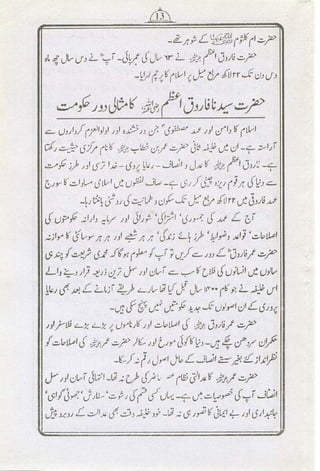 13
حضرت ام کلثوم کے شوہر تھے۔
حضرت فاروق اعظم نے ۶۳ سال کی عمر پائی۔ آپ نے دس سال چھ ماہ
دس دن تک ۲۲ لاکھ مربع میل پر اسلام کا پرچم لہرایا۔
حضرت سیدنا فاروق اعظم کا مثالی دور حکومت
اسلام کا دامن اور عہد مصطفوی جن درخشندہ اور اولوالعزم کرداروں سے
آراستہ ہے۔ ان میں خلیفہ ثانی حضرت عمر بن خطاب کا نام مرکزی حیثیت رکھتا
ہے۔ فاروق اعظم کا عدل و انصاف۔ رعایا پروری۔ خدا ترسی اور طرز حکومت
سے دنیا کی ہر قوم ریزہ چینی کر رہی ہے۔ صاف لفظوں میں اسلامی مساوات کا سورج
عہد فاروقی میں ۲۲ لاکھ مربع میل تک سکون و طمانیت کی روشنی بانٹتا رہا۔
آج کے عہد کی جمہوری، اشتراکی، شورائی اور سرمایہ دارانہ حکومتوں کی
اصلاحات، قواعد و ضوابط، طرز ہائے زندگی، ہر ہر شعبے اور ہر ہر سوسائٹی کا موازنہ
حضرت عمر فاروق کے دور سے کریں تو آپ کو معلوم ہو گا کہ محمدی شریعت کو چند ہی
سالوں میں انسانوں کی فلاح کا سب سے آسان اور سہل ترین ذریعہ قرار دینے والے
اس خلیفہ نے جو کام ۱۴۰۰ سال قبل کیا تھا سارے طریقے آزمانے کے بعد بھی رعایا
پروری کے ان اصولوں تک جدید حکومتیں نہیں پہنچ سکی ہیں۔
حضرت عمر فاروق کی اصلاحات اور کارناموں پر بڑے بڑے فلاسفر اور
حکمران سر دھن چکے ہیں۔ دنیا کا کوئی مورخ اور سکالر حضرت عمر کی اصلاحات کو
نظرانداز کئے بغیر سستے انصاف کے حامل اصول رقم نہ کر سکا۔
حضرت عمر کا عدالتی نظام عہد حاضر کی طرح نہ تھا۔ انتہائی آسان اور سہل
انصاف آپ کی خصوصیات میں ہے۔ یہاں کسی قسم کی رشوت، سفارش، جھوٹی گواہی،
جانبداری اور بے ایمانی کا تصور ہی نہ تھا۔ خود خلیفہ وقت بھی عدالت کے روبرو پیش